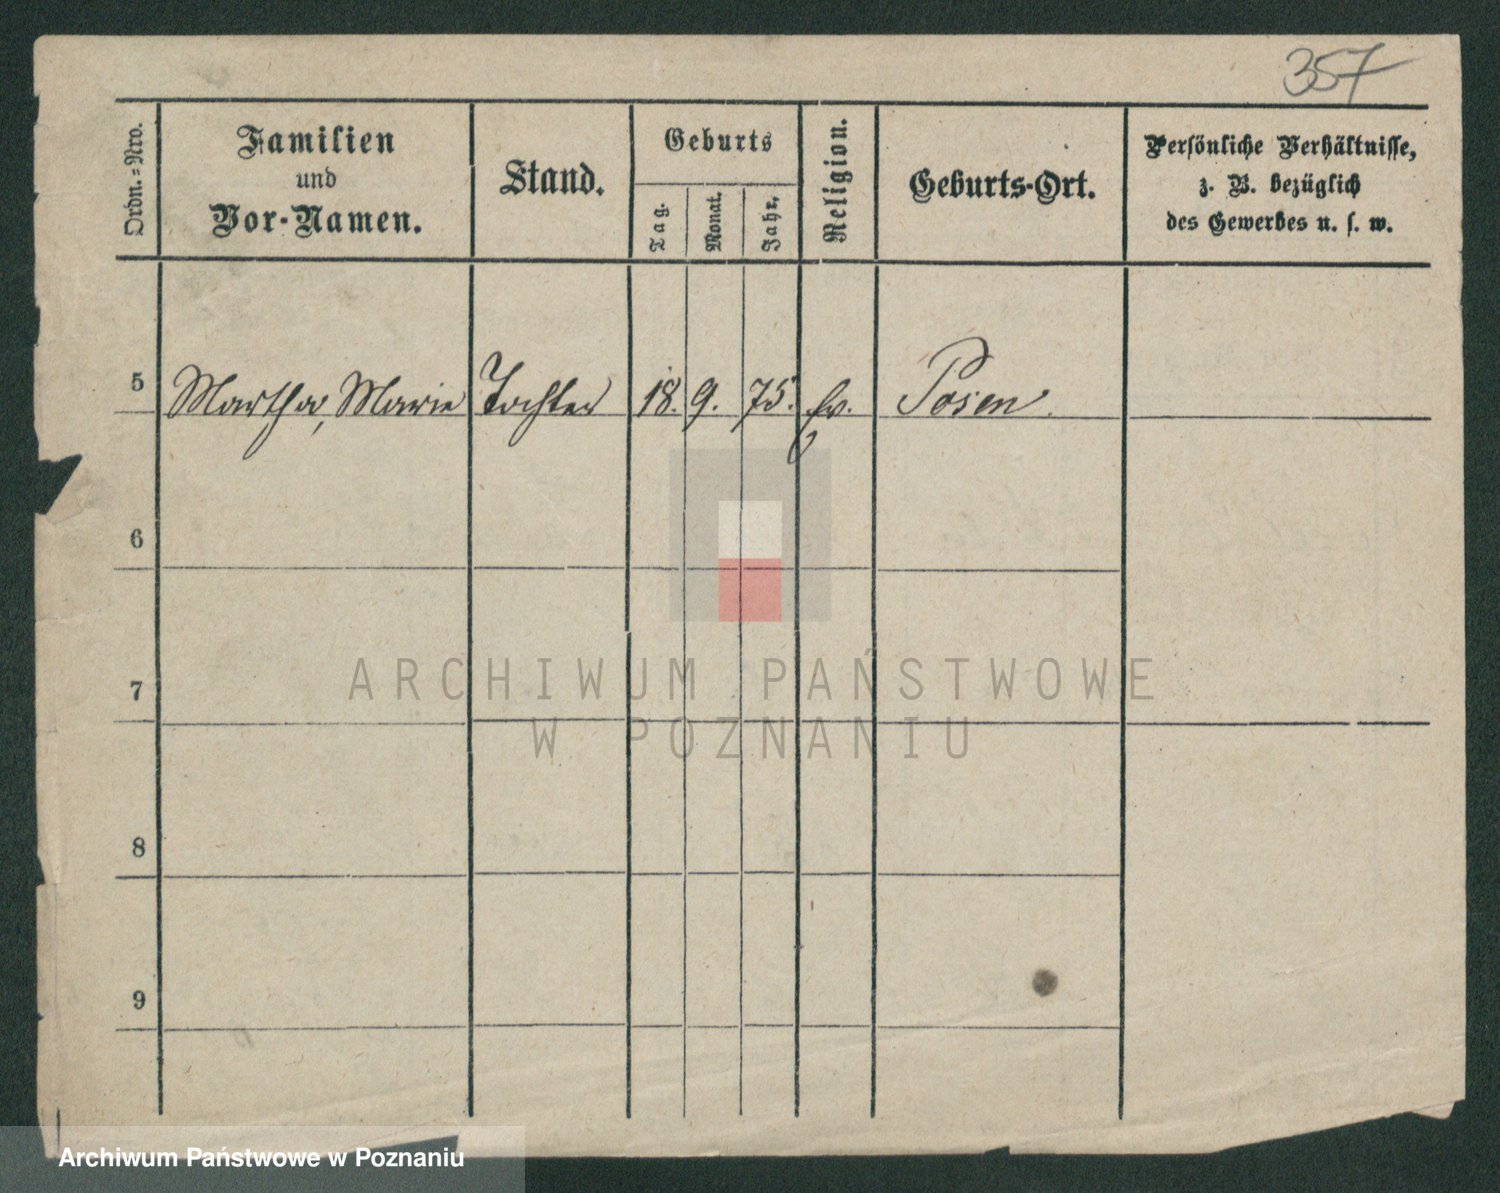 357
Ordn.-Nro.
Familien
und
Vor-Namen.
Stand.
Geburts
Tag.
Monat.
Jahr.
Religion.
Geburts-Ort.
Persönliche Verhältnisse,
z. B. bezüglich
des Gewerbes u. s. w.
5 Martha, Marie Tochter 18. 9. 75. ev. Posen.
6
7
8
9
ARCHIWUM PAŃSTWOWE
W POZNANIU
Archiwum Państwowe w Poznaniu